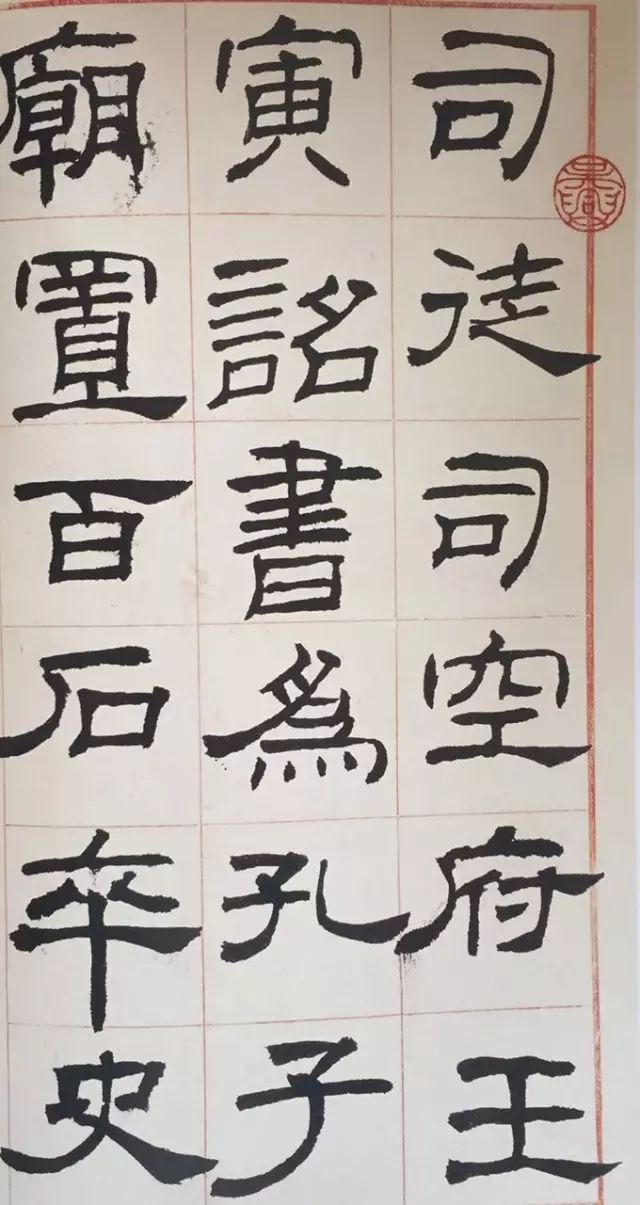 司徒司空府王
寅詔書為孔子
廟置百石卒史